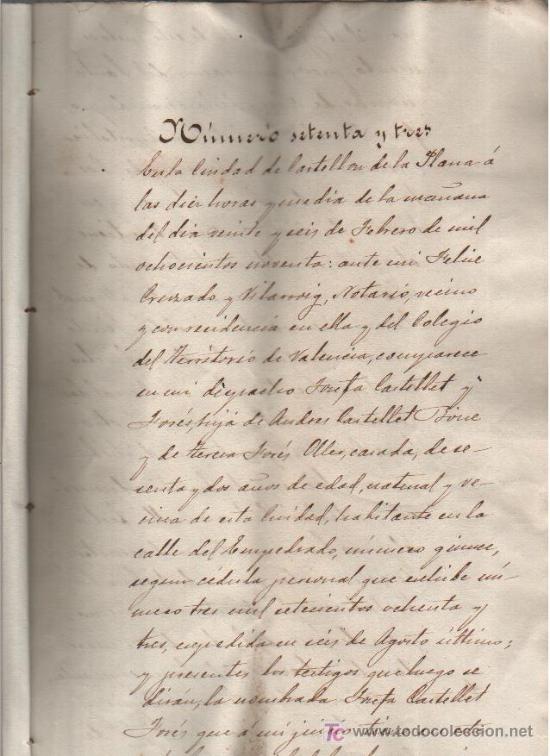 Número setenta y tres
En la Ciudad de Castellon de la Plana á
las diez horas y media de la mañana
del dia veinte y seis de Febrero de mil
ochocientos noventa: ante mi Felipe
Cruzado y Vilarroig, Notario, vecino
y con residencia en ella y del Colegio
del territorio de Valencia, comparece
en mi despacho Josefa Castellet y
Forés, hija de Andres Castellet
y de Teresa Forés Oller, casada, de se-
senta y dos años de edad, natural y ve-
cina de esta Ciudad, habitante en la
calle del Empedrado, número quince,
segun cédula personal que exhibe nú-
mero tres mil setecientos ochenta y
tres, expedida en seis de Agosto último;
y presentes los testigos que luego se
dirán, la nombrada Josefa Castellet
Forés que á mi juicio
www.todocoleccion.net